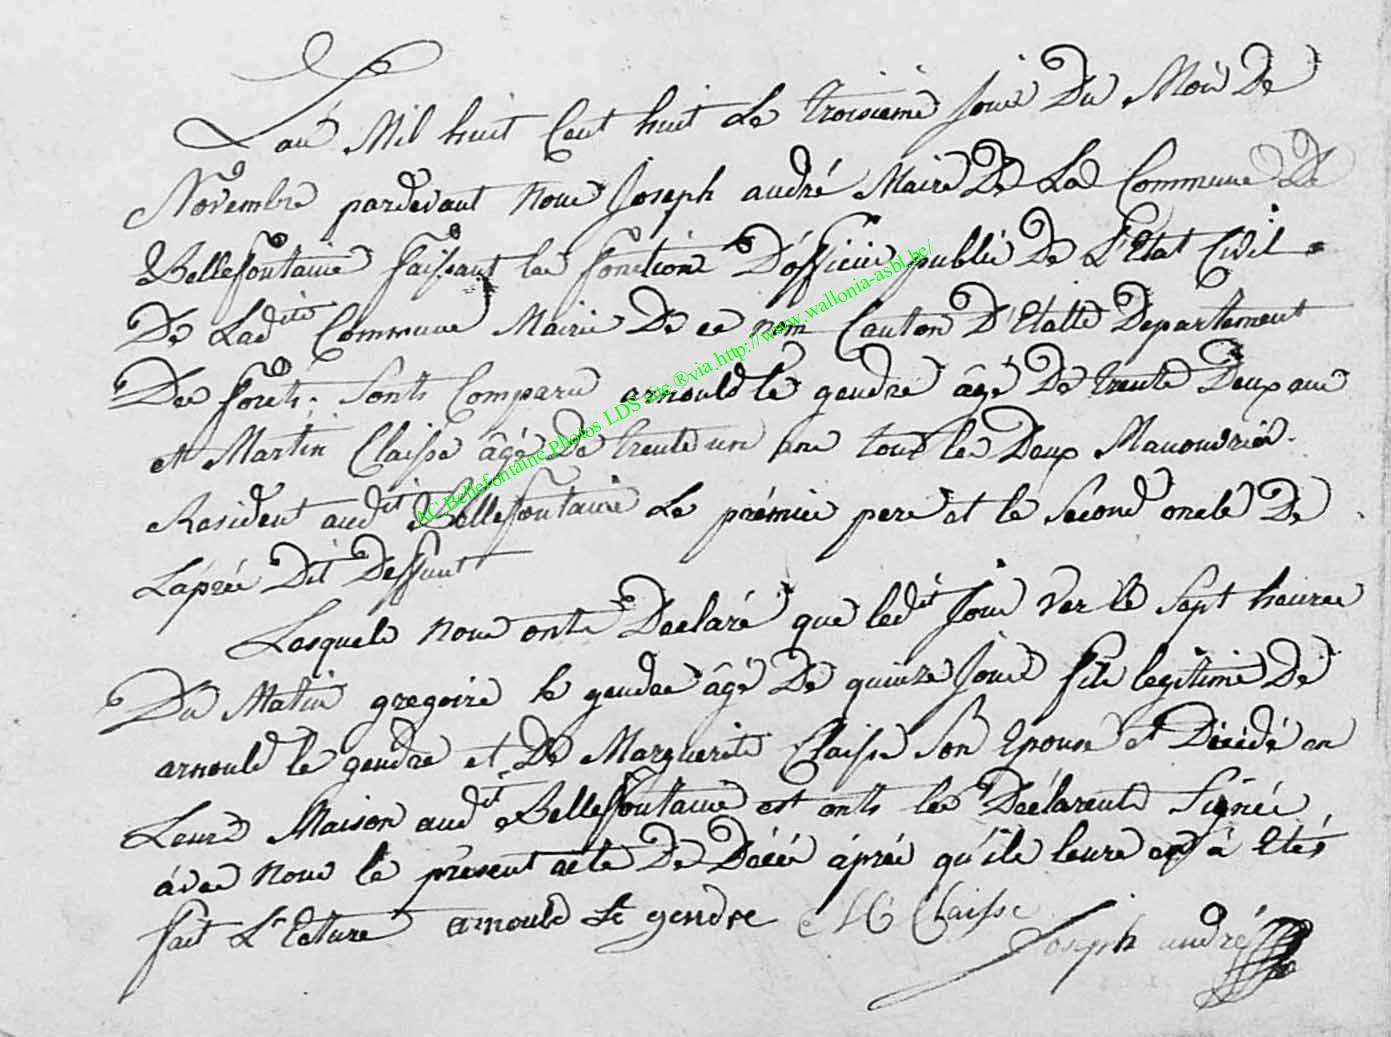 L'an Mil huit Cent huit Le troisieme Jour Du Mois De
Novembre pardevant nous Joseph andré Maire De La Commune De
Bellefontaine faissant les fonctions D'officier public De L'Etat Civil
De Ladite Commune Mairie De ce nom Canton D'Etalle Departement
Des forets. Sonts Comparu arnould le gendre âgé De trente Deux ans
et Martin Claisse âgé De trente un ans tous les Deux Manouvriers.
Resident audit Bellefontaine Le prémier pere et le Second oncle De
L'aprés Dit Deffunt
Lesquels nous onts Declaré que ledit Jour vers le Sept heures
Du Matin gregoire le gendre âgé De quinze Jours fils legitime De
arnould le gendre et De Marguerite Claisse Son Epouse et Décédé en
Leurs Maison audit Bellefontaine et onts les Déclarents Signés
avec nous le présent acte De Décés áprés qu'ils leurs en à Etés
fait L'Ecture arnould Le gendre M Claisse Joseph andré
AC Bellefontaine Photos LDS site ®via http://www.wallonia-asbl.be/